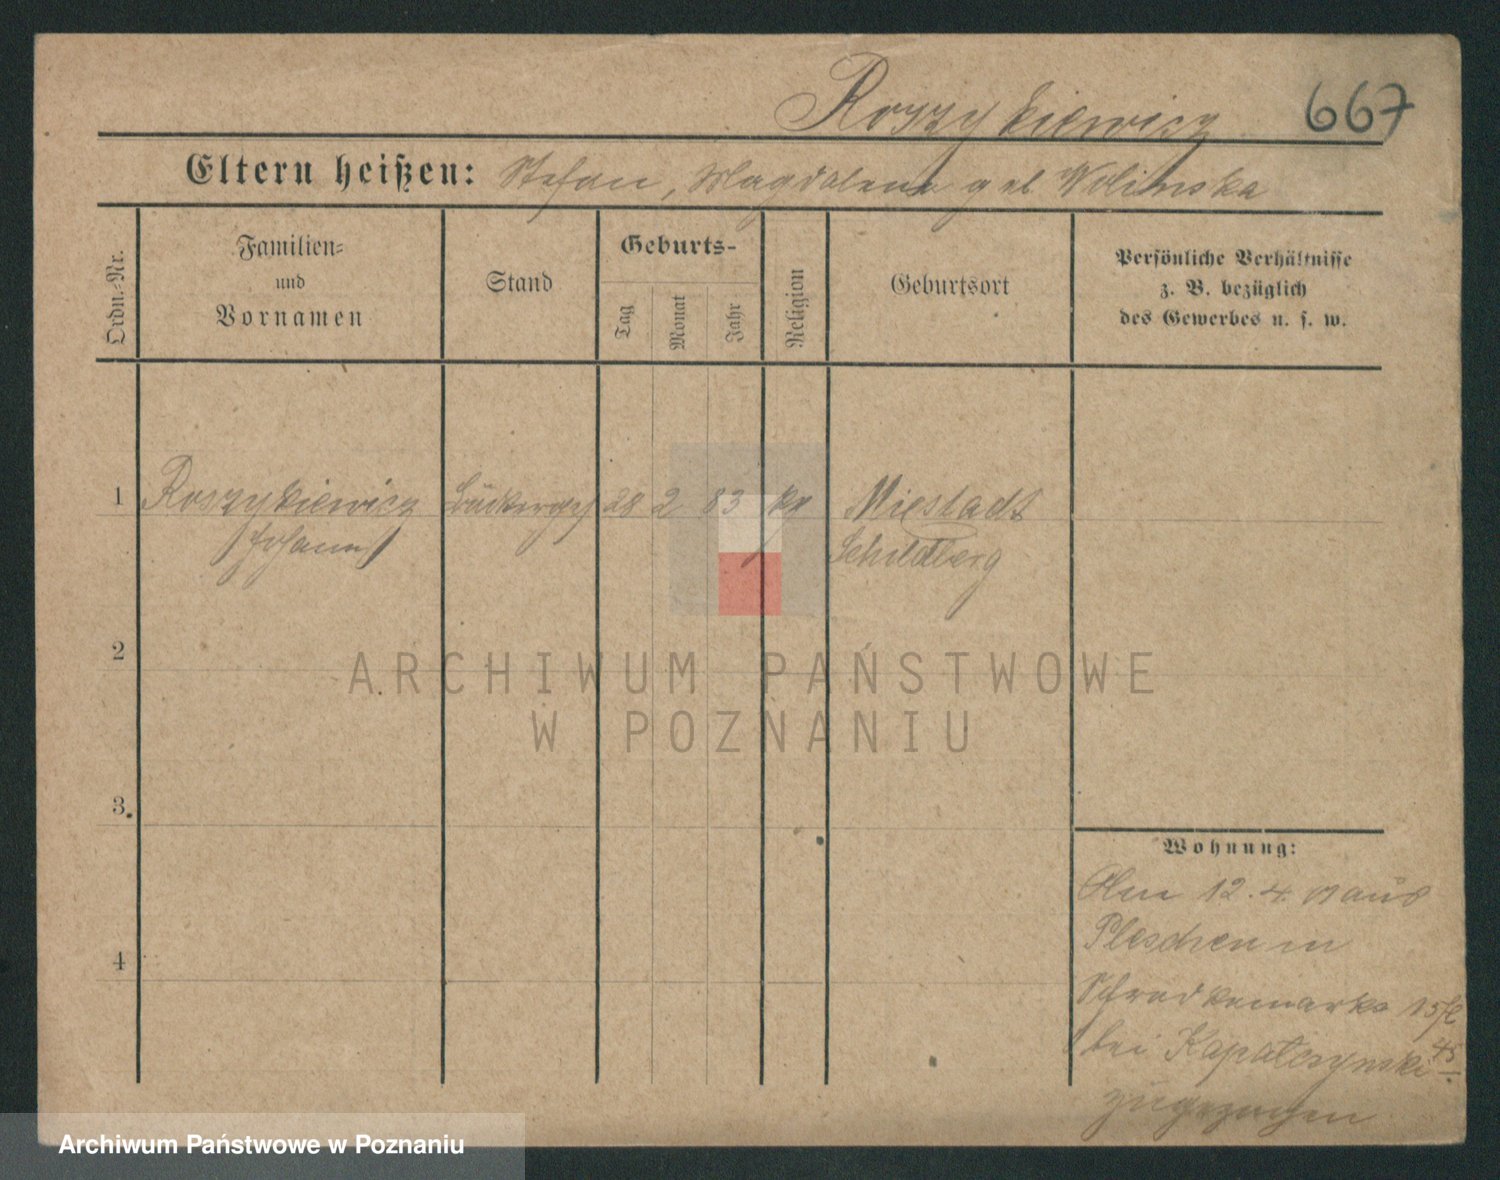 Roszykiewicz 667
Eltern heißen: Stefan, Magdalena geb Wolinska
Ordn.-Nr.
Familien-
und
Vornamen
Stand
Geburts-
Tag
Monat
Jahr
Religion
Geburtsort
Persönliche Verhältnisse
z. B. bezüglich
des Gewerbes u. s. w.
1 Roszykiewicz Bäckerges 28 2 83 kt Mixstadt
Johann Schildberg
2
ARCHIWUM PAŃSTWOWE
W POZNANIU
3
4
Wohnung:
Am 12.4. aus
Pleschen in
15
bei Kapalczynski
zugezogen
Archiwum Państwowe w Poznaniu